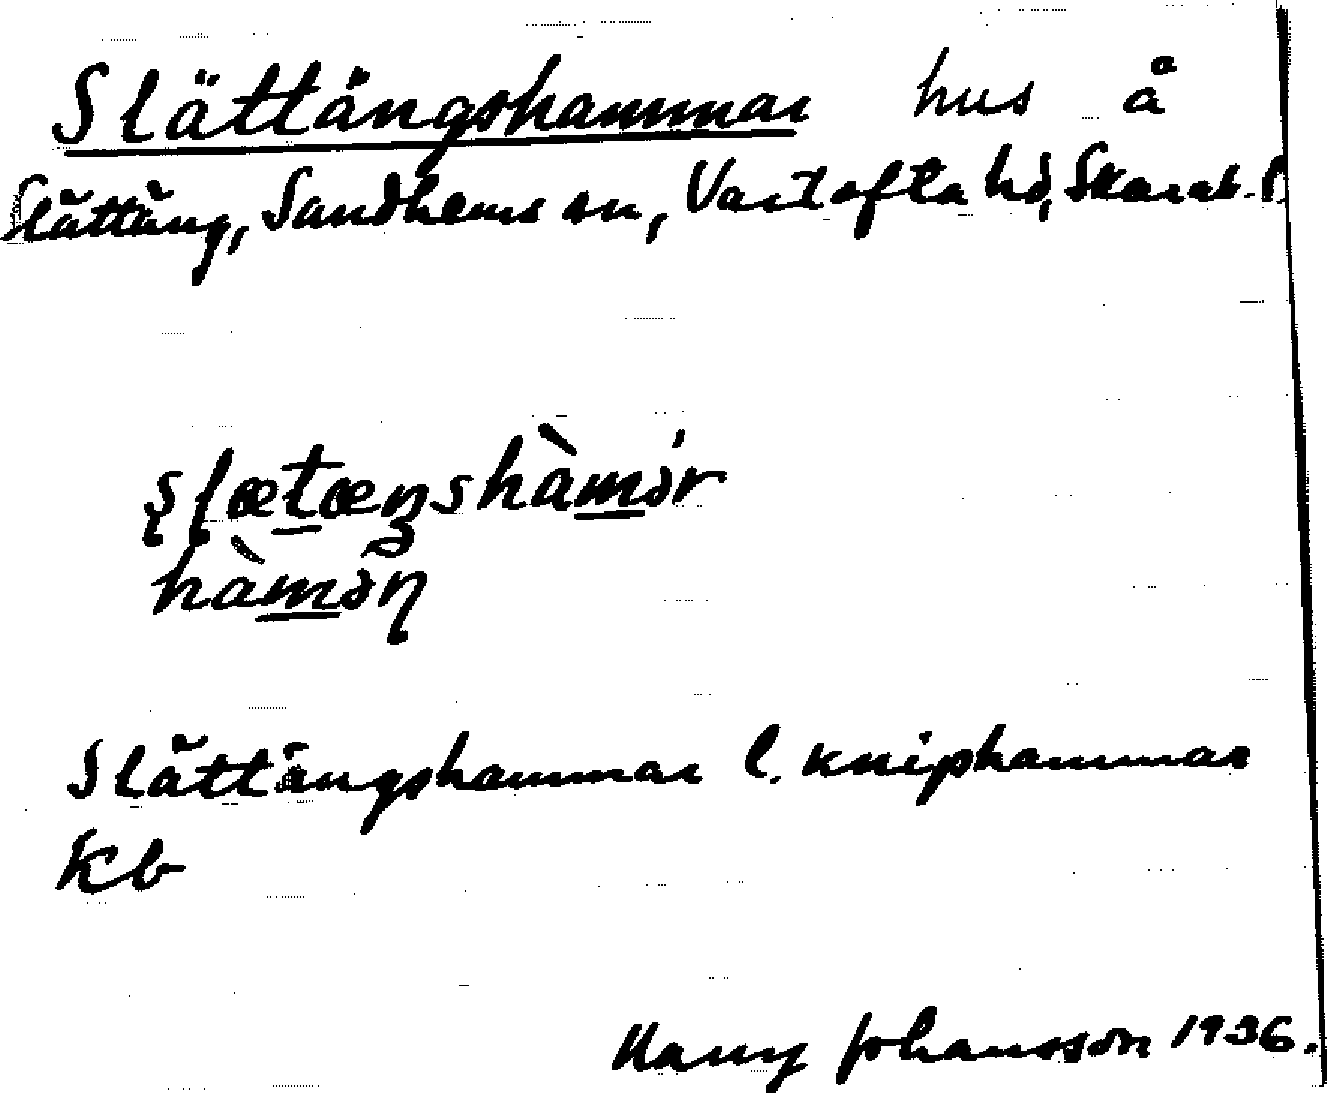 Slättängshammar hus å
Slättäng, Sandhems sn, Vartofta hd, Skarab. l.
ʂlætæŋshàmər
hàməɳ
Slättängshammar l. kniphammar
kb
Harry Johansson 1936.